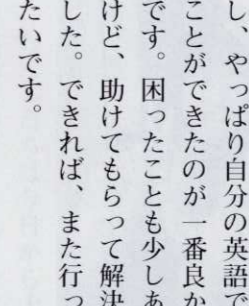 し、やっぱり自分の英語で
ことができたのが一番良か
です。困ったことも少しあ
けど、助けてもらって解決
した。できれば、また行っ
たいです。